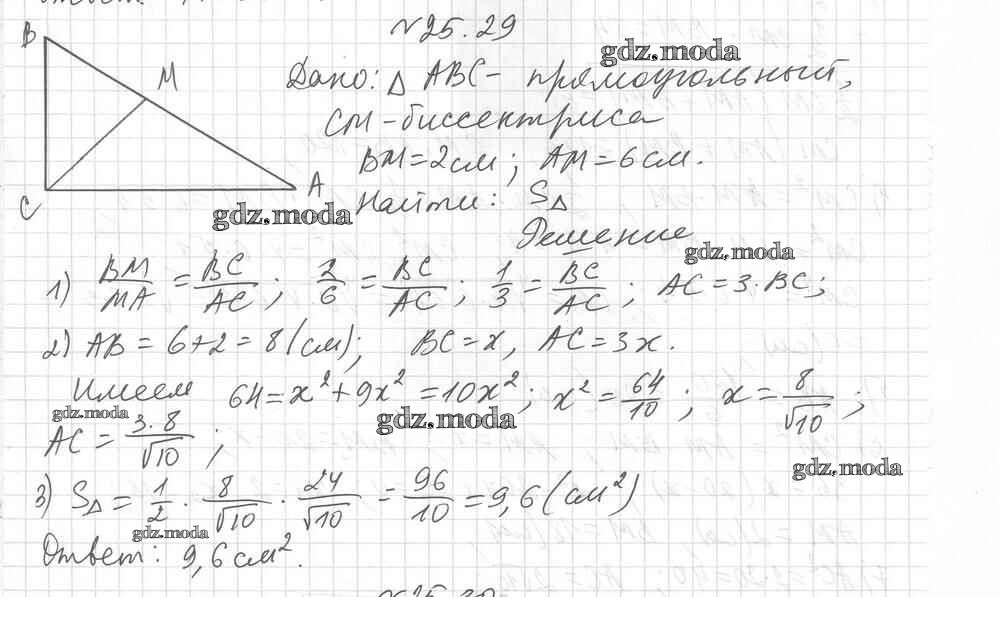 №25.29
gdz.moda
B
M
Дано: Δ ABC – прямоугольный,
CM – биссектриса
BM = 2 см; AM = 6 см.
A
C
gdz.moda
Найти: SΔ
Решение
gdz.moda
1) BM/MA = BC/AC; 2/6 = BC/AC; 1/3 = BC/AC; AC = 3·BC;
2) AB = 6+2 = 8 (см); BC = x, AC = 3x.
Имеем 64 = x² + 9x² = 10x²; x² = 64/10; x = 8/√10;
gdz.moda
gdz.moda
AC = 3·8/√10;
gdz.moda
3) SΔ = 1/2 · 8/√10 · 24/√10 = 96/10 = 9,6 (см²)
gdz.moda
Ответ: 9,6 см².